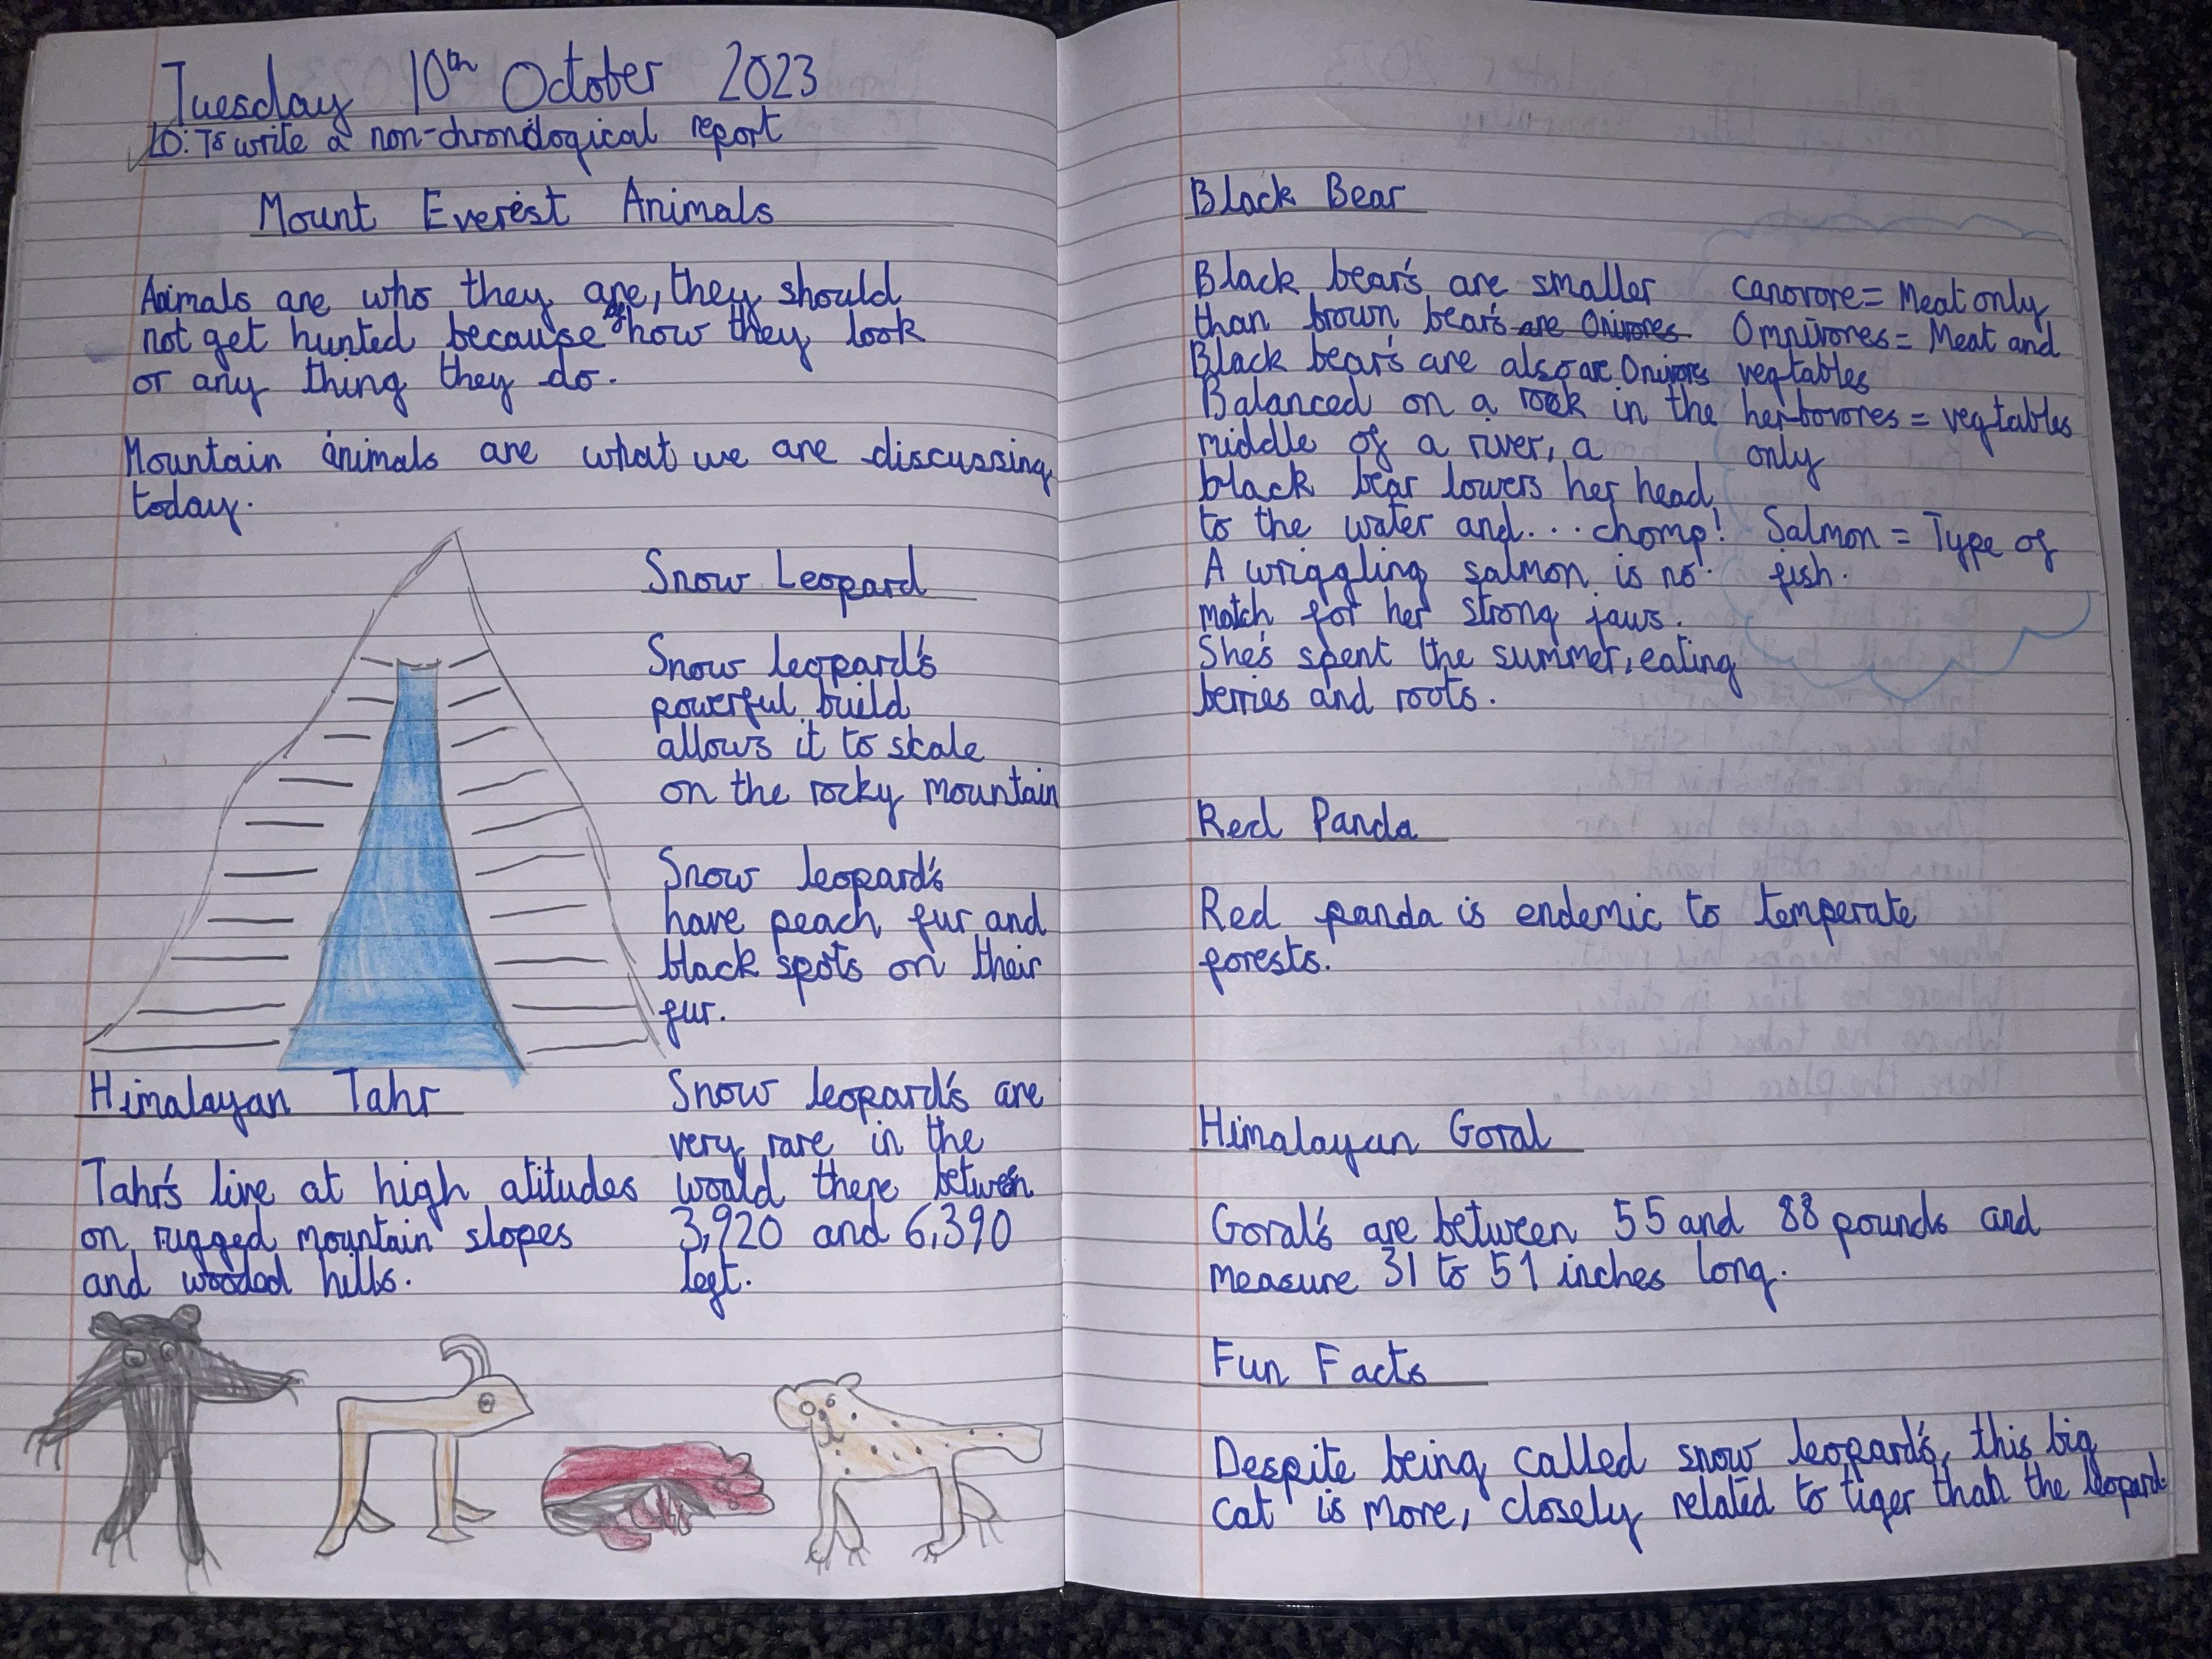 Tuesday 10th October 2023
LO: To write a non-chronological report
Mount Everest Animals
Animals are who they are, they should
not get hunted because of how they look
or any thing they do.
Mountain animals are what we are discussing
today.
Snow Leopard
Snow leopard's
powerful build
allows it to scale
on the rocky mountain
Snow leopard's
have peach fur and
black spots on their
fur.
Snow leopard's are
very rare in the
would there between
3,920 and 6,390
left.
Himalayan Tahr
Tahr's live at high atitudes
on rugged mountain slopes
and wooded hills.
Black Bear
Black bear's are smaller
than brown bear's are Onivores
Black bear's are also are Onivors
Balanced on a rock in the
middle of a river, a
black bear lowers her head
to the water and... chomp!
A wriggling salmon is no
match for her strong jaws.
She's spent the summer, eating
berries and roots.
canovore = Meat only
Omnivores = Meat and
vegtables
herbovores = vegtables
only
Salmon = Type of
fish.
Red Panda
Red panda is endemic to temperate
forests.
Himalayan Goral
Goral's are between 55 and 88 pounds and
measure 31 to 51 inches long.
Fun Facts
Despite being called snow leopard's, this big
cat is more, closely related to tiger than the leopard.